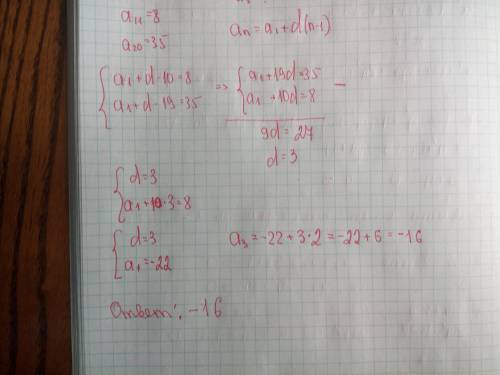 a₁₁=8
a₂₀=35
aₙ=a₁+d(n-1)
{a₁+d·10=8
a₁+d·19=35
=> {a₁+19d=35
a₁+10d=8 —
9d=27
d=3
{d=3
a₁+10·3=8
{d=3
a₁=-22
a₃=-22+3·2=-22+6=-16
Ответ: -16